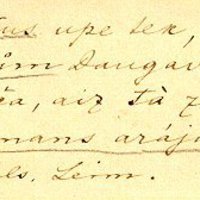 us upe tek,
Daugav
aiz tā
mans arāj
ls. Leim.